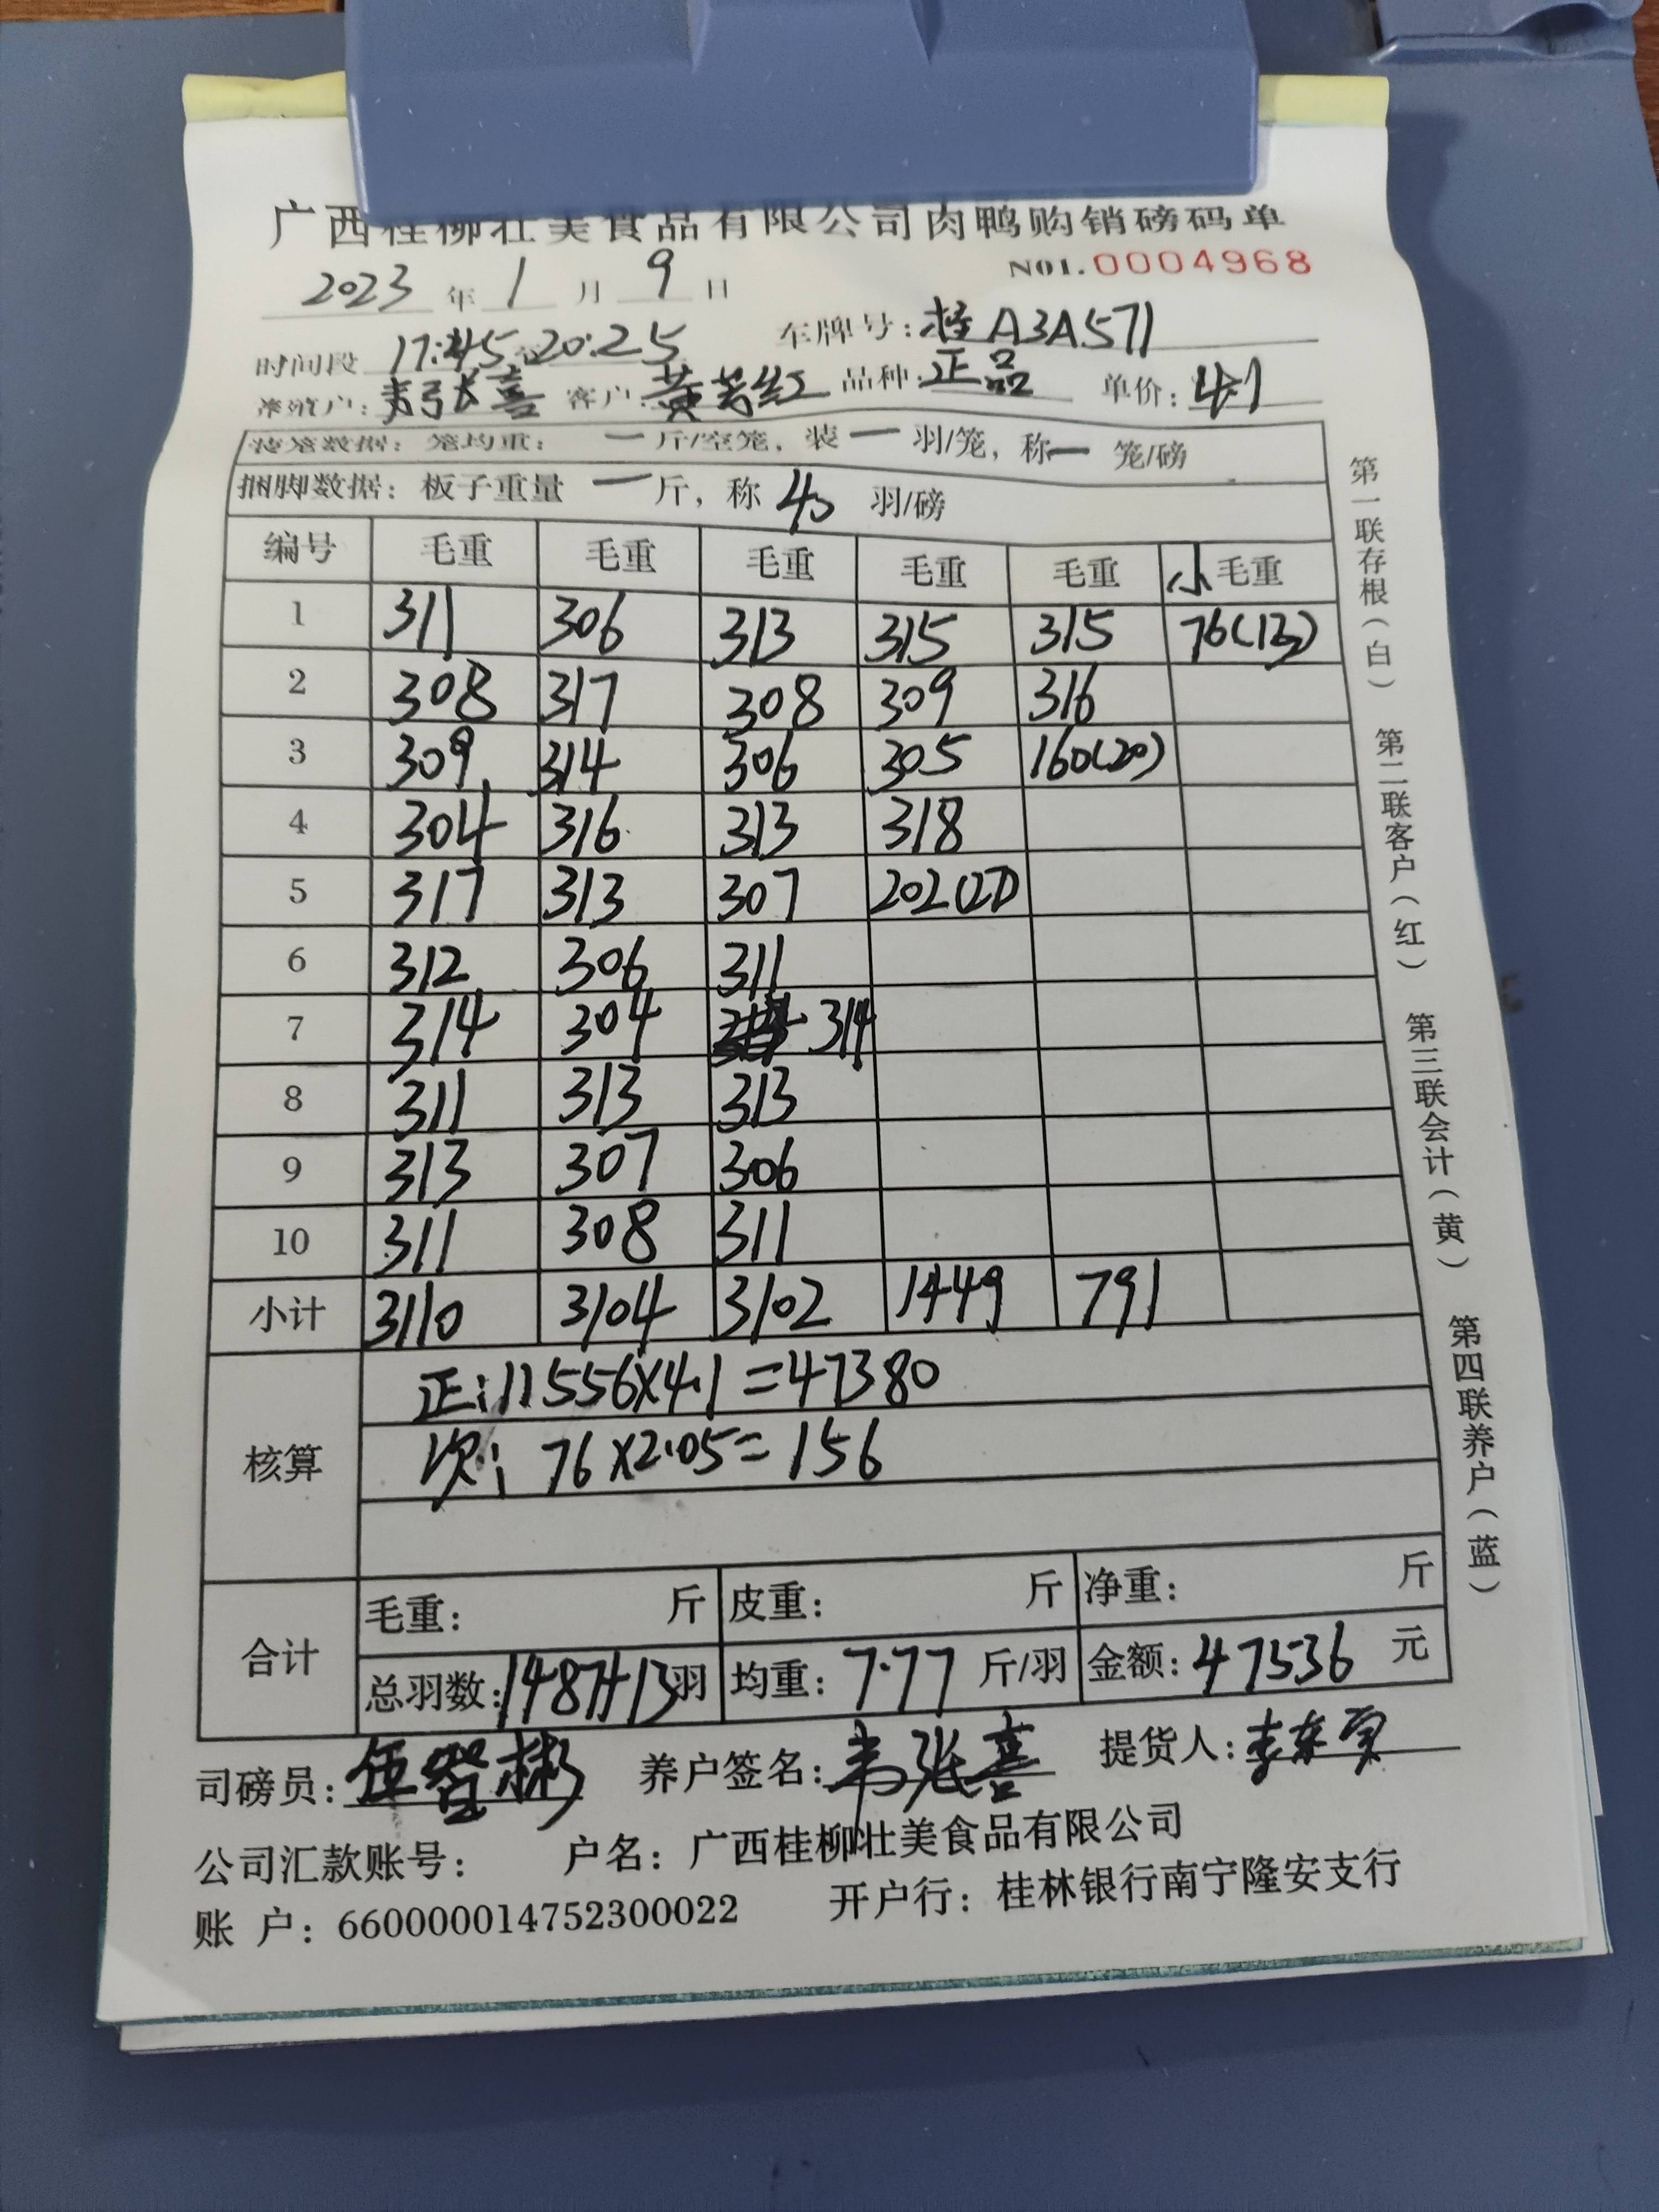 广西桂柳壮美食品有限公司肉鸭购销磅码单
2023 年 1 月 9 日 N01.0004968
时间段 17:45 至 20:25 车牌号:桂A3A571
养殖户: 韦张喜 客户: 黄芳红 品种: 正品 单价: 4.1
装笼数据: 笼均重: 一 斤/空笼, 装 一 羽/笼, 称 一 笼/磅
捆脚数据: 板子重量 一 斤, 称 40 羽/磅
编号 毛重 毛重 毛重 毛重 毛重 小毛重
1 311 306 313 315 315 76(13)
2 308 317 308 309 316
3 309 314 306 305 160(20)
4 304 316 313 318
5 317 313 307 202(27)
6 312 306 311
7 314 304 314
8 311 313 313
9 313 307 306
10 311 308 311
小计 3110 3104 3102 1449 791
核算
正: 11556×4.1=47380
次: 76×2.05=156
合计
毛重: 斤 皮重: 斤 净重: 斤
总羽数: 1487+13羽 均重: 7.77 斤/羽 金额: 47536 元
司磅员: 伍智彬 养户签名: 韦张喜 提货人:
公司汇款账号: 户名: 广西桂柳壮美食品有限公司
账 户: 660000014752300022 开户行: 桂林银行南宁隆安支行
第一联存根(白) 第二联客户(红) 第三联会计(黄) 第四联养户(蓝)